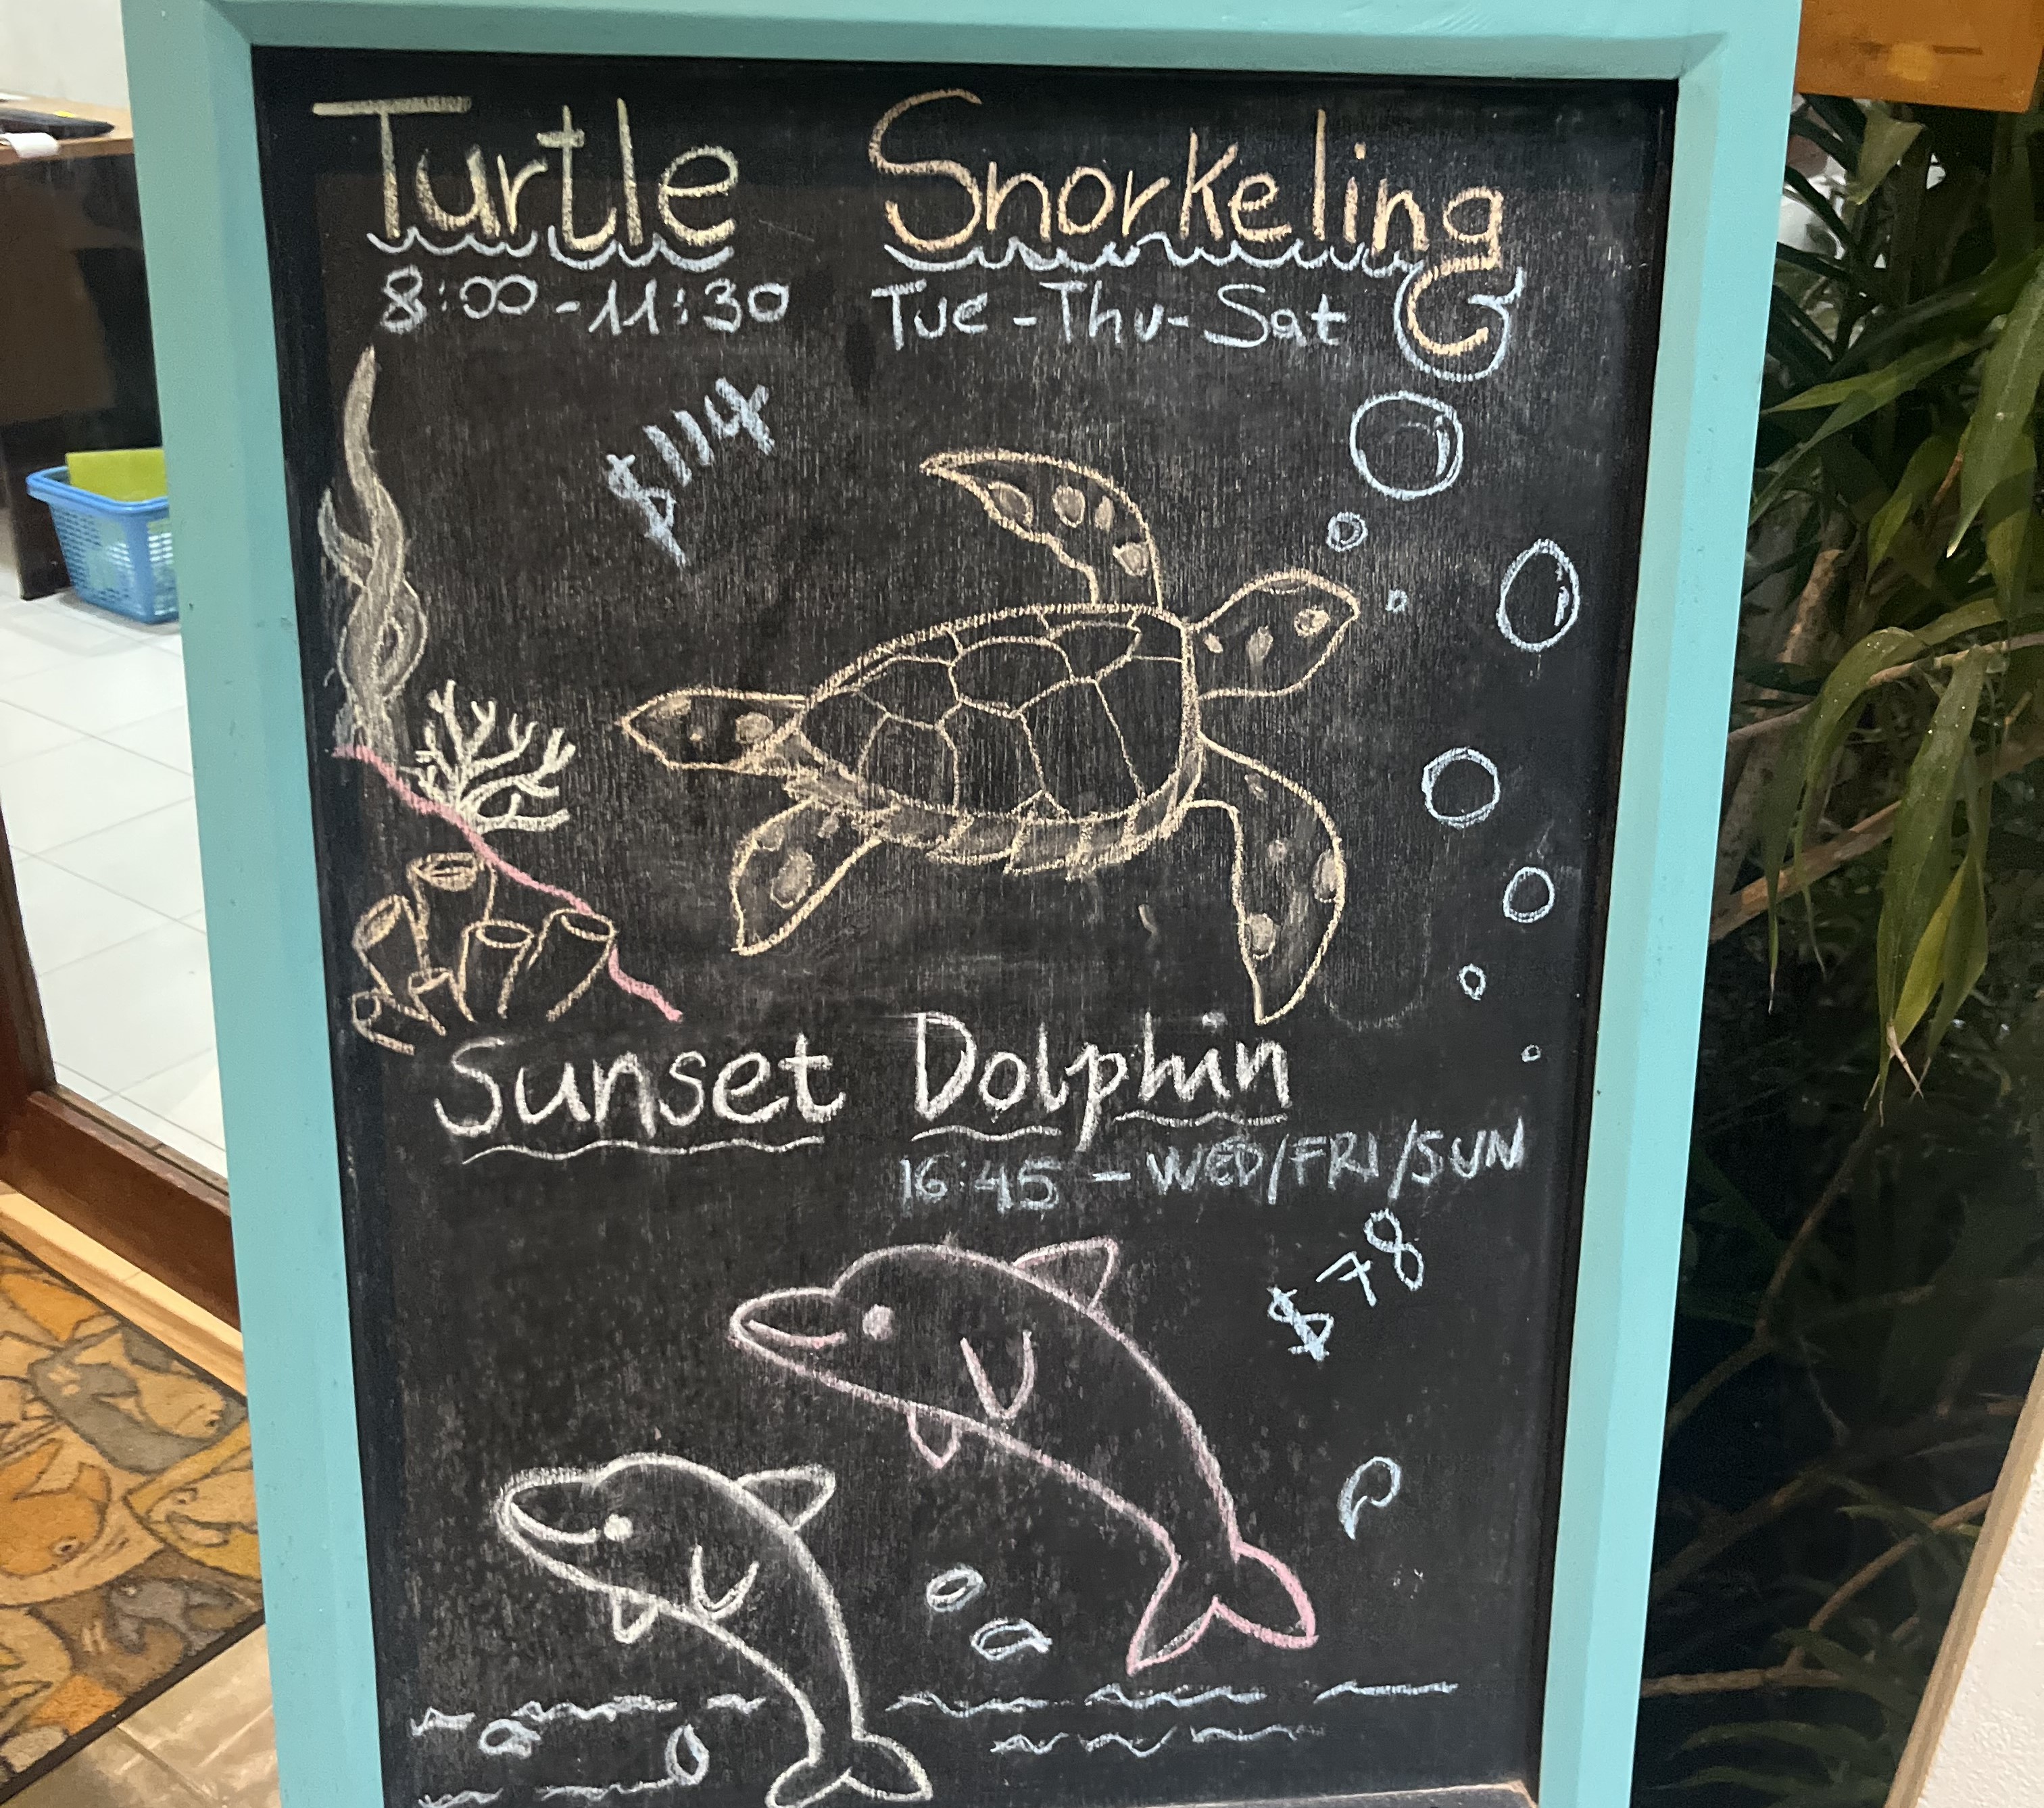 Turtle Snorkeling
8:00 - 11:30 Tue - Thu - Sat
$114
Sunset Dolphin
16:45 - WED/FRI/SUN
$78